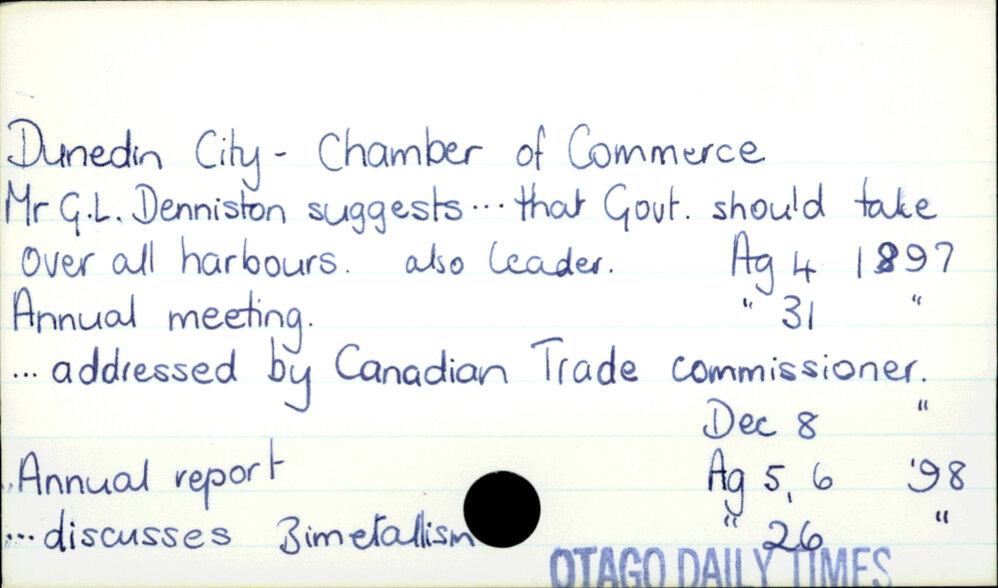 Dunedin City - Chamber of Commerce
Mr G.L. Denniston suggests... that Govt. should take
over all harbours. also leader. Ag 4 1897
Annual meeting. " 31 "
... addressed by Canadian Trade commissioner.
Dec 8 "
Annual report Ag 5, 6 '98
... discusses Bimetallism " 26 "
OTAGO DAILY TIMES